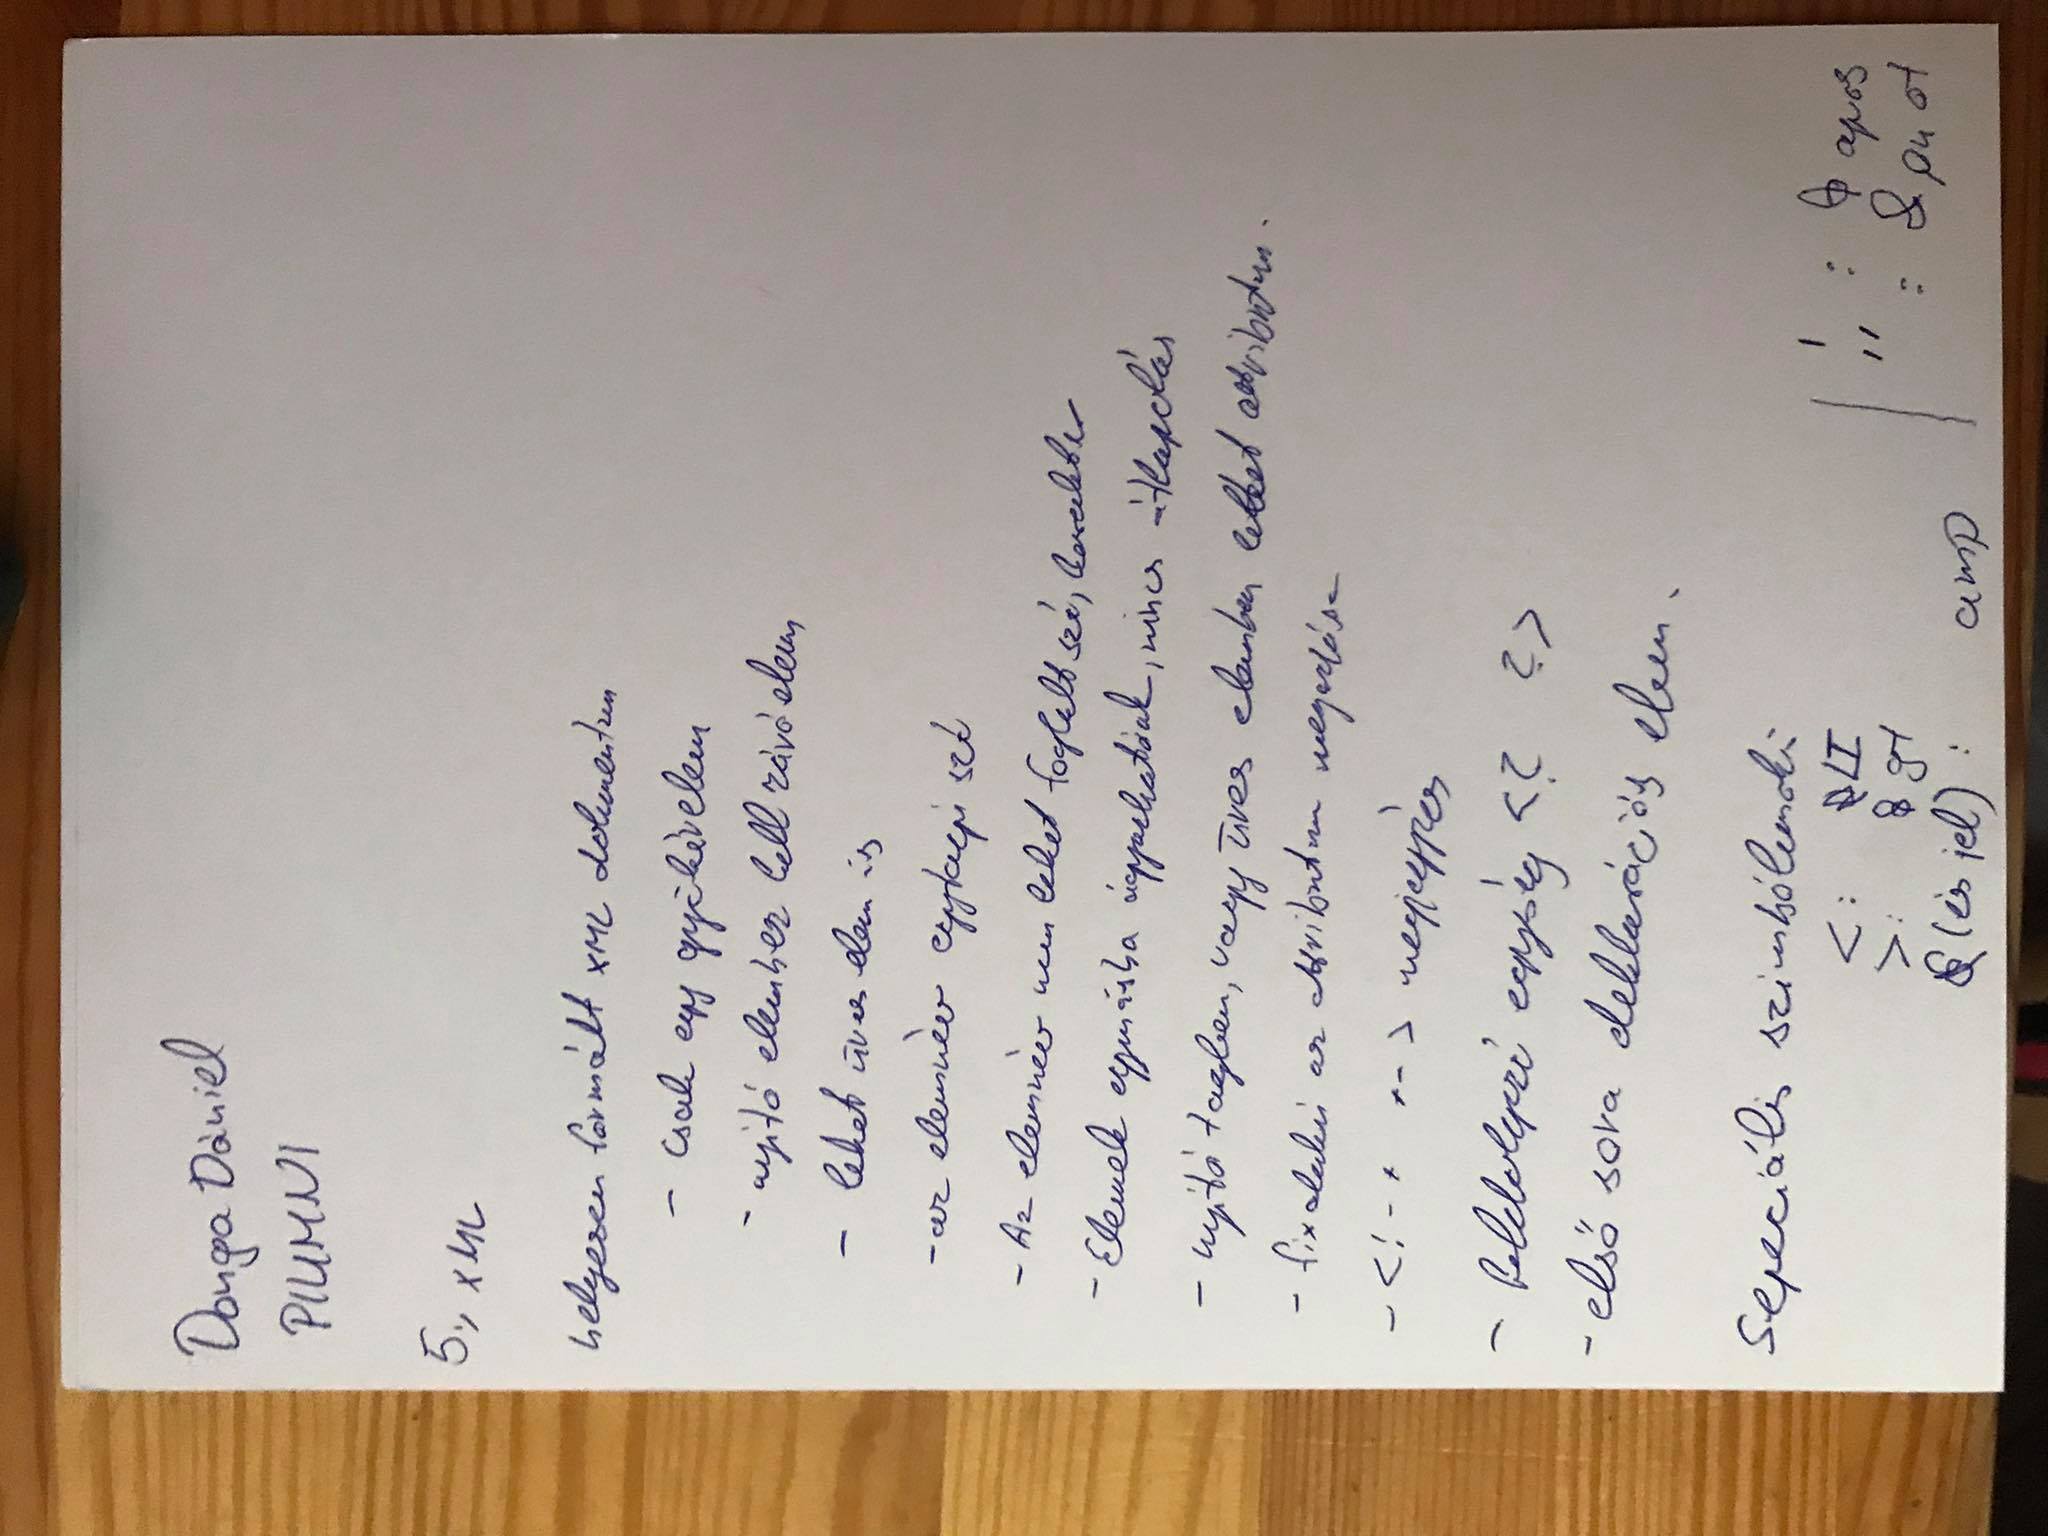 Donga Dániel
PIUMNI
5., XML
helyesen formált XML dokumentum
- Csak egy gyökérelem
- nyitó elemhez kell záró elem
- lehet üres elem is
- az elemnév egytagú szó
- Az elemnév nem lehet foglalt szó, karakter
- Elemek egymásba ágyazhatóak, nincs átlapolás
- nyitó tagben, vagy üres elemben lehet attribútum.
- fix alakú az attribútum megadása
- <!-* *-> megjegyzés
- feldolgozó egység <? ?>
- első sora deklarációs elem.
Sepeciális szimbólumok:
<: & LT
>: & gt
& (és jel) : amp
' : & apos
" : & quot